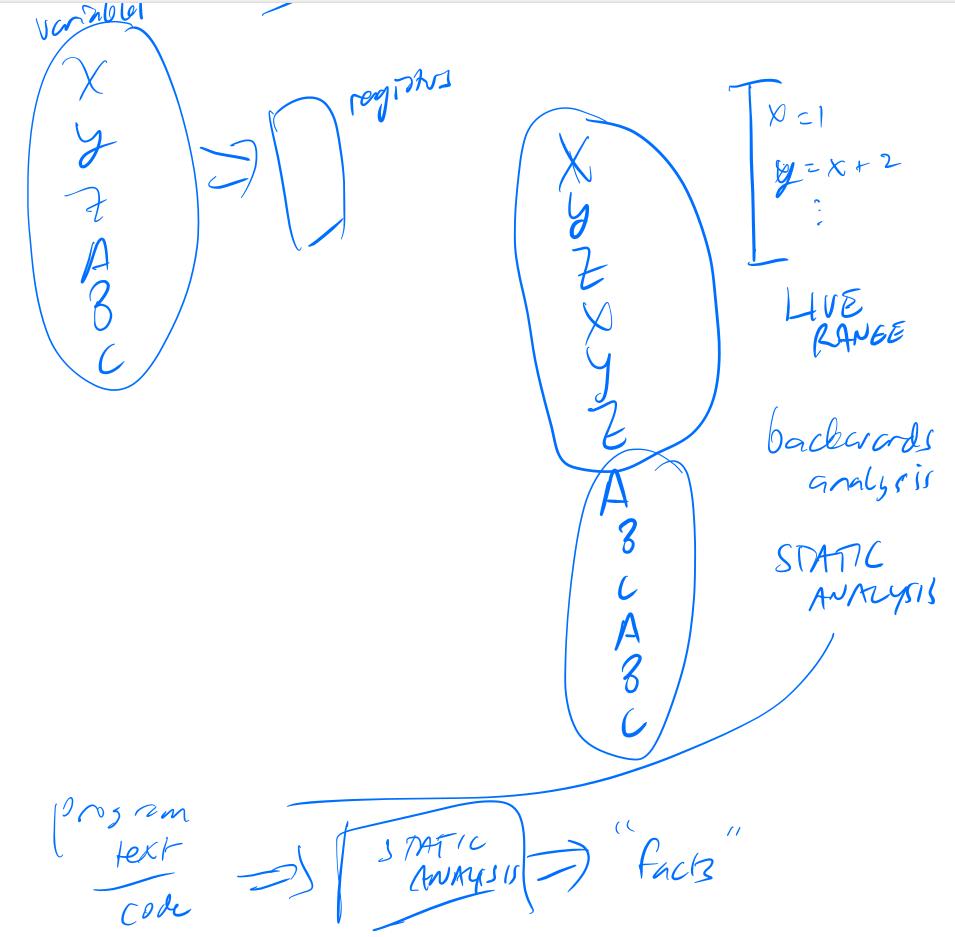 variables
X
y
Z
A
B
C
registers
X
y
Z
X
y
Z
A
B
C
A
B
C
x = 1
y = x + 2
⋮
LIVE
RANGE
backwards
analysis
STATIC
ANALYSIS
program
text
code
STATIC
ANALYSIS
"facts"